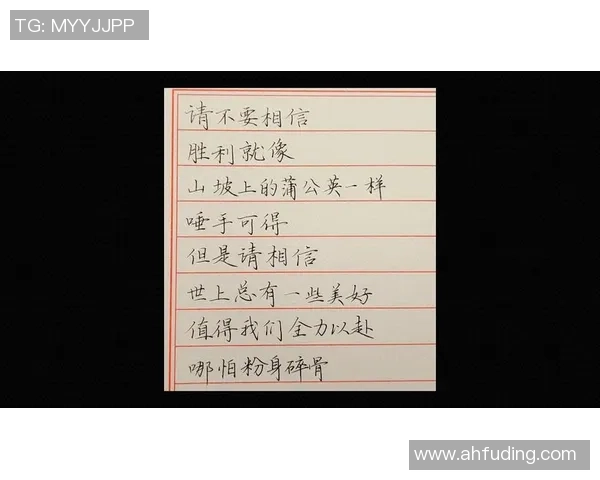 TG: MYYJJPP
请不要相信
胜利就像
山坡上的蒲公英一样
唾手可得
但是请相信
世上总有一些美好
值得我们全力以赴
哪怕粉身碎骨
www.ahfuding.com